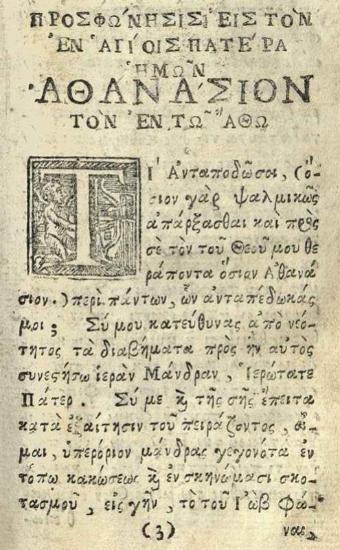 ΠΡΟΣΦΩΝΗΣΙΣ ΕΙΣ ΤΟΝ
ΕΝ ἉΓΙΟΙΣ ΠΑΤΕΡΑ
ἩΜΩΝ
ἈΘΑΝΑΣΙΟΝ
ΤΟΝ ἘΝ ΤΩ͂ ἌΘΩ
ΤΙ Ἀνταποδώσω, (ὅ-
σιον γὰρ ψαλμικῶς
ἀπάρξασθαι καὶ πρὸς
σὲ τὸν τοῦ Θεοῦ μου θε
ράποντα ὅσιον Ἀθανά
σιον.) περὶ πάντων, ὧν ἀνταπέδωκάς
μοι; Σύ μου κατεύθυνας ἀπὸ νεό-
τητος τὰ διαβήματα πρὸς ἣν αὐτὸς
συνεστήσω ἱερὰν Μάνδραν, Ἱερώτατε
Πάτερ. Σύ με ϗ τῆς σῆς ἔπειτα
κατὰ ἐξαίτησιν τοῦ πειράζοντος, οἶ-
μαι, ὑπερόριον μάνδρας γεγονότα ἐν
τόπῳ κακώσεως ϗ ἐν σκηνώμασι σκο-
τασμοῦ, εἰς γῆν, τὸ τοῦ Ἰὼβ φά-
(3) ναι,